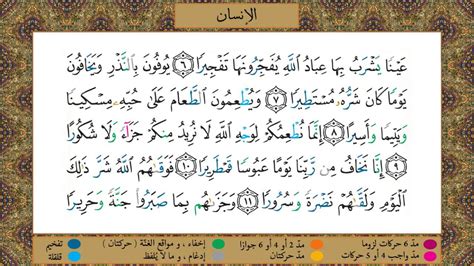 الإنسان
عَيْنًا يَشْرَبُ بِهَا عِبَادُ اللَّهِ يُفَجِّرُونَهَا تَفْجِيرًا ٦ يُوفُونَ بِالنَّذْرِ وَيَخَافُونَ
يَوْمًا كَانَ شَرُّهُ مُسْتَطِيرًا ٧ وَيُطْعِمُونَ الطَّعَامَ عَلَىٰ حُبِّهِ مِسْكِينًا
وَيَتِيمًا وَأَسِيرًا ٨ إِنَّمَا نُطْعِمُكُمْ لِوَجْهِ اللَّهِ لَا نُرِيدُ مِنكُمْ جَزَاءً وَلَا شُكُورًا
٩ إِنَّا نَخَافُ مِن رَّبِّنَا يَوْمًا عَبُوسًا قَمْطَرِيرًا ١٠ فَوَقَاهُمُ اللَّهُ شَرَّ ذَٰلِكَ
الْيَوْمِ وَلَقَّاهُمْ نَضْرَةً وَسُرُورًا ١١ وَجَزَاهُم بِمَا صَبَرُوا جَنَّةً وَحَرِيرًا
مدّ 6 حركات لزوما مدّ 2 أو 4 أو 6 جوازا إخفاء ، و مواقع الغنّة ( حركتان ) تفخيم
مدّ واجب 4 أو 5 حركات مدّ حركتان إدغام ، و ما لا يُلفظ قلقلة